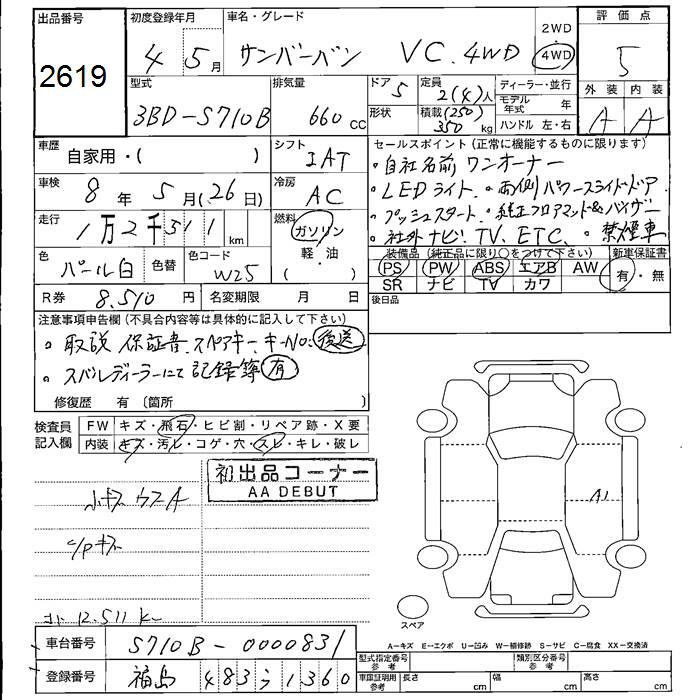 出品番号 2619
初度登録年月 4 5月
車名・グレード サンバーバン VC. 4WD
2WD・4WD
評価点 5
型式 3BD-S710B
排気量 660 cc
ドア 5
形状
定員 2(4)人
積載 (250) 350 kg
ディーラー・並行
モデル年式 年
ハンドル 左・右
外装 内装
A A
車歴 自家用・( )
シフト IAT
車検 8年 5月(26日)
冷房 AC
走行 1万2千511 km
燃料 ガソリン 軽・油
色 パール白 色替
色コード W25
R券 8.510 円
名変期限 月 日
セールスポイント(正常に機能するものに限ります)
・自社名前 ワンオーナー
・LEDライト ・両側パワースライドドア
・プッシュスタート ・純正フロアマット&バイザー
・社外ナビ. TV. ETC. ・禁煙車
装備品(純正品に限り○をつけて下さい)
PS PW ABS エアB AW
SR ナビ TV カワ
新車保証書
有・無
後日品
注意事項申告欄(不具合内容等は具体的に記入して下さい)
・取説 保証書 スペアキー. キーNo. 後送
・スバルディーラーにて記録簿 有
修復歴 有(箇所 )
検査員記入欄
FW キズ・飛石・ヒビ割・リペア跡・X要
内装 キズ・汚レ・コゲ・穴・スレ・キレ・破レ
初出品コーナー
AA DEBUT
小キズ ウスA
C/Pキズ
12.511 k
A1
スペア
A−キズ E−エクボ U−凹み W−補修跡 S−サビ C−腐食 XX−交換済
車台番号 S710B-0000831
登録番号 福島 483 う 1360
型式指定番号 参考
類別区分番号 参考
車庫証明用 参考 長さ cm 幅 cm 高さ cm